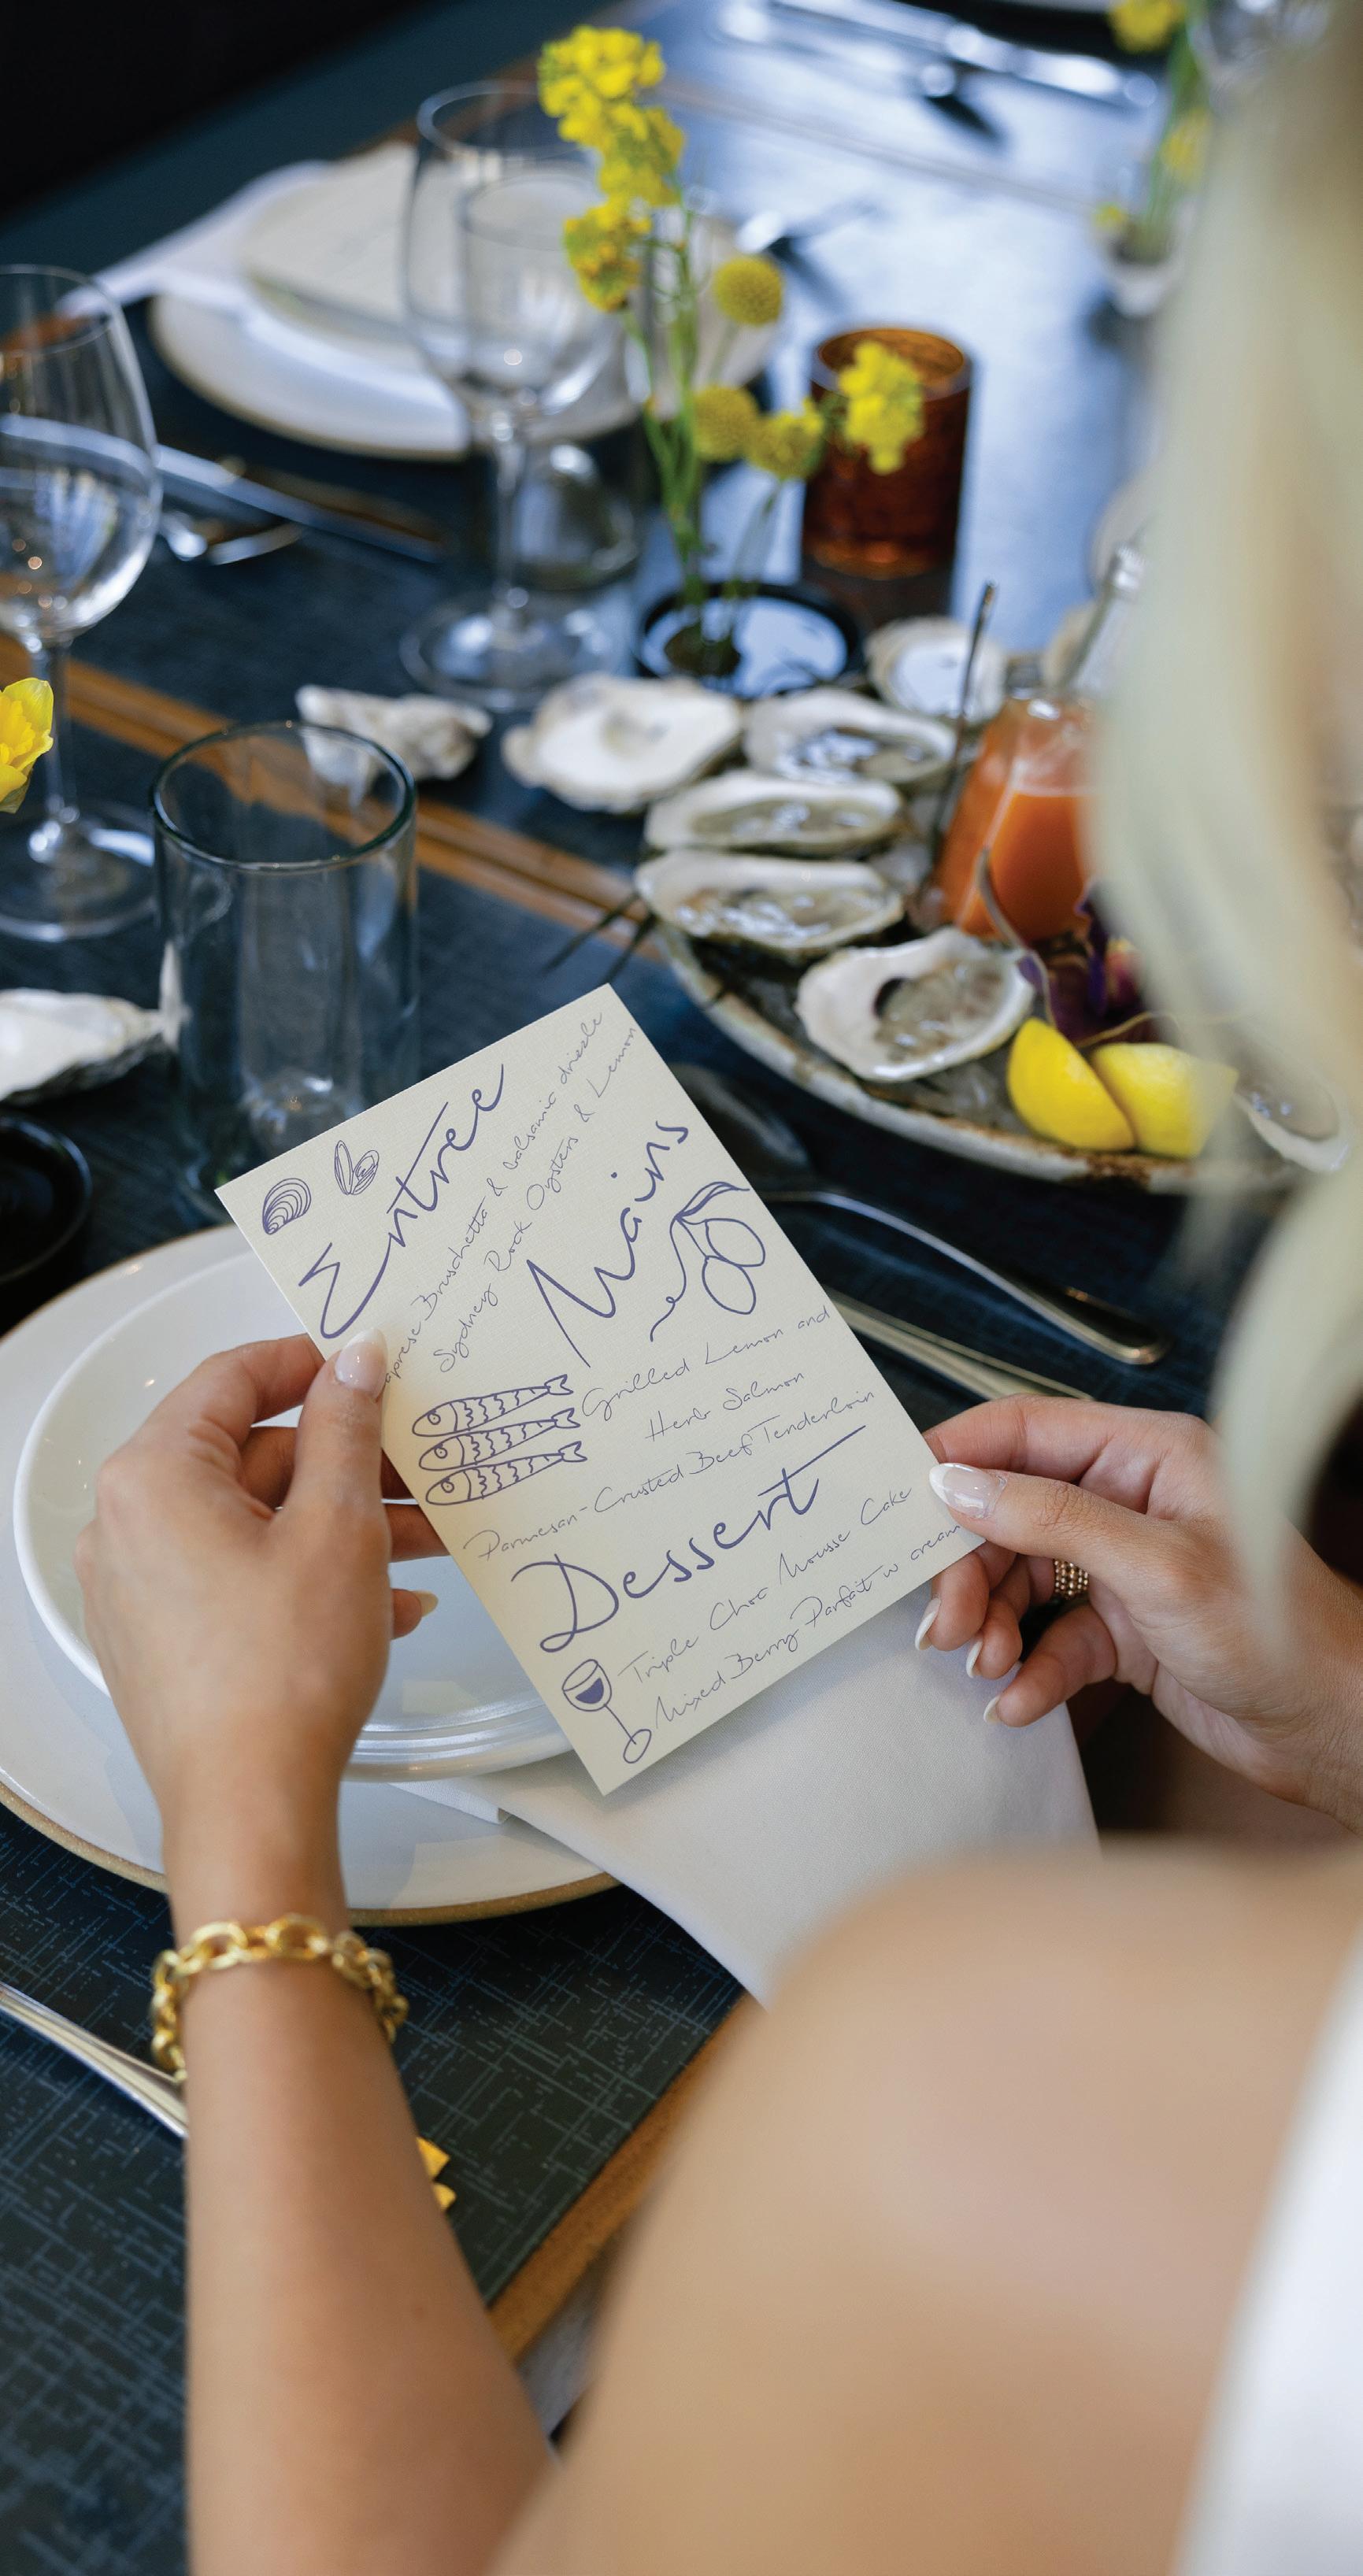 Entree
Caprese Bruschetta & balsamic drizzle
Sydney Rock Oysters & Lemon
Mains
Grilled Lemon and
Herb Salmon
Parmesan-Crusted Beef Tenderloin
Dessert
Triple Choc Mousse Cake
Mixed Berry Parfait w cream